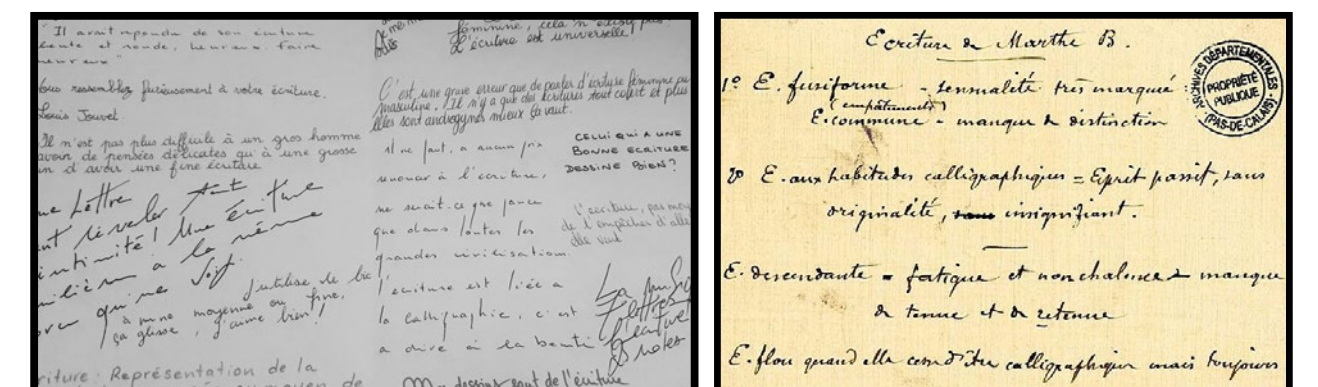 "Il avait répondu de son écriture
lente et ronde, heureux. Faire
heureux"
vous ressemblez furieusement à votre écriture.
Louis Jouvet
Il n'est pas plus difficile à un gros homme
avoir de pensées délicates qu'à une grosse
d'avoir une fine écriture
Lettre tout
révéler
intimité! Une écriture
a la même
qu'une
J'utilise de
à mine moyenne ou fine,
ça glisse, j'aime bien!
riture. Représentation de la
féminine, cela n'existe pas!
L'écriture est universelle!
C'est une grave erreur que de parler d'écriture féminine ou
masculine. Il n'y a que des écritures tout court et plus
elles sont androgynes mieux ça vaut.
Il ne faut, a aucun prix
renouer à l'écriture,
CELUI QUI A UNE
BONNE ECRITURE
DESSINE BIEN?
ne serait-ce que parce
que dans toutes les
grandes civilisations
l'écriture est liée a
la calligraphie, c'est
a dire à la beauté
l'écriture, pas moy
de l'empêcher d'aller
elle vaut
dessins sont de l'écriture
Ecriture de Marthe B.
1° E. fusiforme - sensualité très marquée
(empâtements)
E. commune = manque de distinction
2° E. aux habitudes calligraphiques = Esprit passif, sans
originalité, insignifiant.
E. descendante = fatigue et nonchalance - manque
de tenue et de retenue
E. floue quand elle cesse d'être calligraphique mais toujours
ARCHIVES DÉPARTEMENTALES
PROPRIÉTÉ
PUBLIQUE
(PAS-DE-CALAIS)